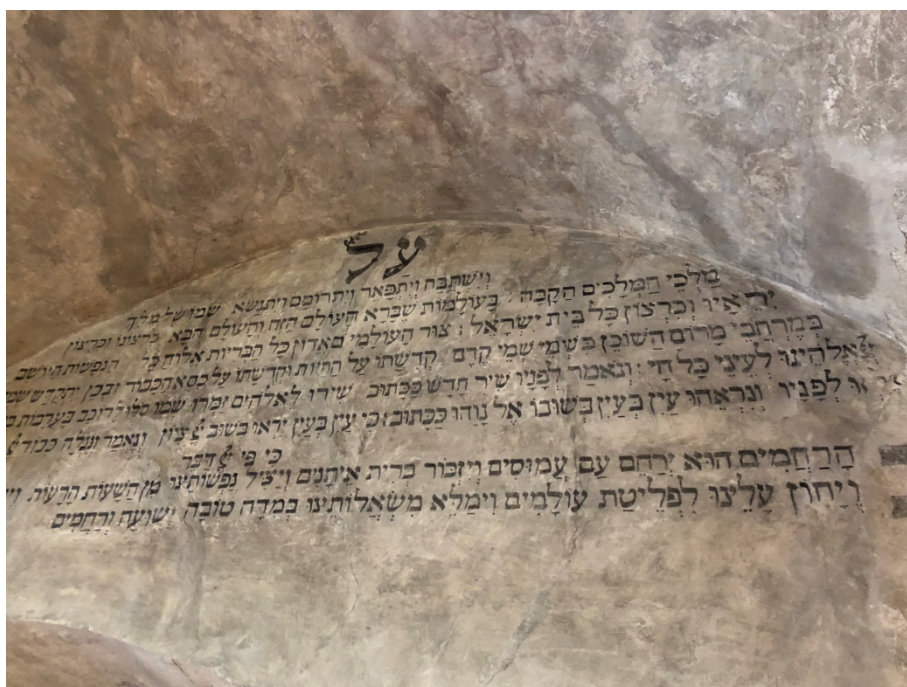 על
וְיִשְׁתַּבַּח וְיִתְפָּאַר וְיִתְרוֹמַם וְיִתְנַשֵּׂא שמו של מלך
מַלְכֵי הַמְּלָכִים הַקָּבָּה בָּעוֹלָמוֹת שֶׁבָּרָא הָעוֹלָם הַזֶּה וְהָעוֹלָם הַבָּא כרצונו וכרצון
יְרֵאָיו וְכִרְצוֹן כָּל בֵּית יִשְׂרָאֵל : צוּר הָעוֹלָמִים אֲדוֹן כָּל הַבְּרִיּוֹת אלוה כל הנפשות היושב
בְּמֶרְחֲבֵי מָרוֹם הַשּׁוֹכֵן בִּשְׁמֵי שְׁמֵי קֶדֶם קְדֻשָּׁתוֹ עַל הַחַיּוֹת וּקְדֻשָּׁתוֹ עַל כסא הכבוד ובכן יתקדש שמך
אֱלֹהֵינוּ לְעֵינֵי כָּל חָי : וְנֹאמַר לְפָנָיו שִׁיר חָדָשׁ כַּכָּתוּב שִׁירוּ לֵאלֹהִים זַמְּרוּ שְׁמוֹ סֹלּוּ לָרוֹכֵב בָּעֲרָבוֹת
לְפָנָיו וְנִרְאֵהוּ עַיִן בְּעַיִן בְּשׁוּבוֹ אֶל נָוֵהוּ כַּכָּתוּב : כִּי עַיִן בְּעַיִן יִרְאוּ בְּשׁוּב צִיּוֹן וְנֶאֱמַר וְנִגְלָה כבוד
כִּי פִּי דִּבֵּר
הָרַחֲמִים הוּא יְרַחֵם עַם עֲמוּסִים וְיִזְכּוֹר בְּרִית אֵיתָנִים וְיַצִּיל נַפְשׁוֹתֵינוּ מִן הַשָּׁעוֹת הָרָעוֹת
וְיָחוֹן עָלֵינוּ לִפְלֵיטַת עוֹלָמִים וִימַלֵּא מִשְׁאֲלוֹתֵינוּ בְּמִדָּה טוֹבָה יְשׁוּעָה וְרַחֲמִים